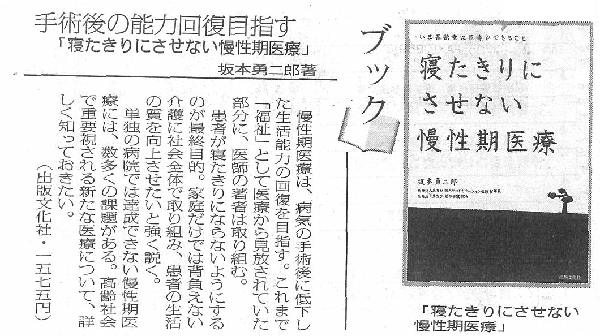 手術後の能力回復目指す
「寝たきりにさせない慢性期医療」
坂本勇二郎著
ブック
慢性期医療は、病気の手術後に低下し
た生活能力の回復を目指す。これまで
「福祉」として医療から見放されていた
部分に、医師の著者は取り組む。
患者が寝たきりにならないようにする
のが最終目的。家庭だけでは背負えない
介護に社会全体で取り組み、患者の生活
の質を向上させたいと強く説く。
単独の病院では達成できない慢性期医
療には、数多くの課題がある。高齢社会
で重要視される新たな医療について、詳
しく知っておきたい。
（出版文化社・一五七五円）
寝たきりに
させない
慢性期医療
坂本勇二郎
「寝たきりにさせない
慢性期医療」